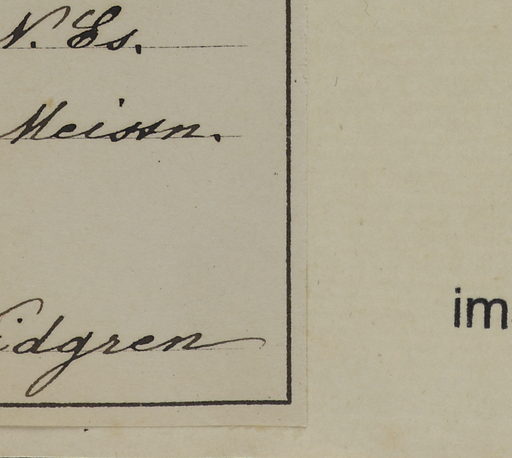 N. Es.
Meissn.
idgren
im